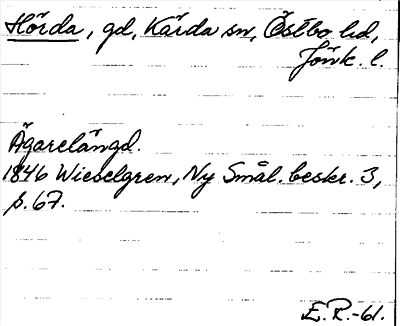 Hörda, gd, Kärda sn, Östbo hd,
Jönk. l.
Ägarelängd.
1846 Wieselgren, Ny Smål. beskr. 3,
p. 67.
E.R.-61.